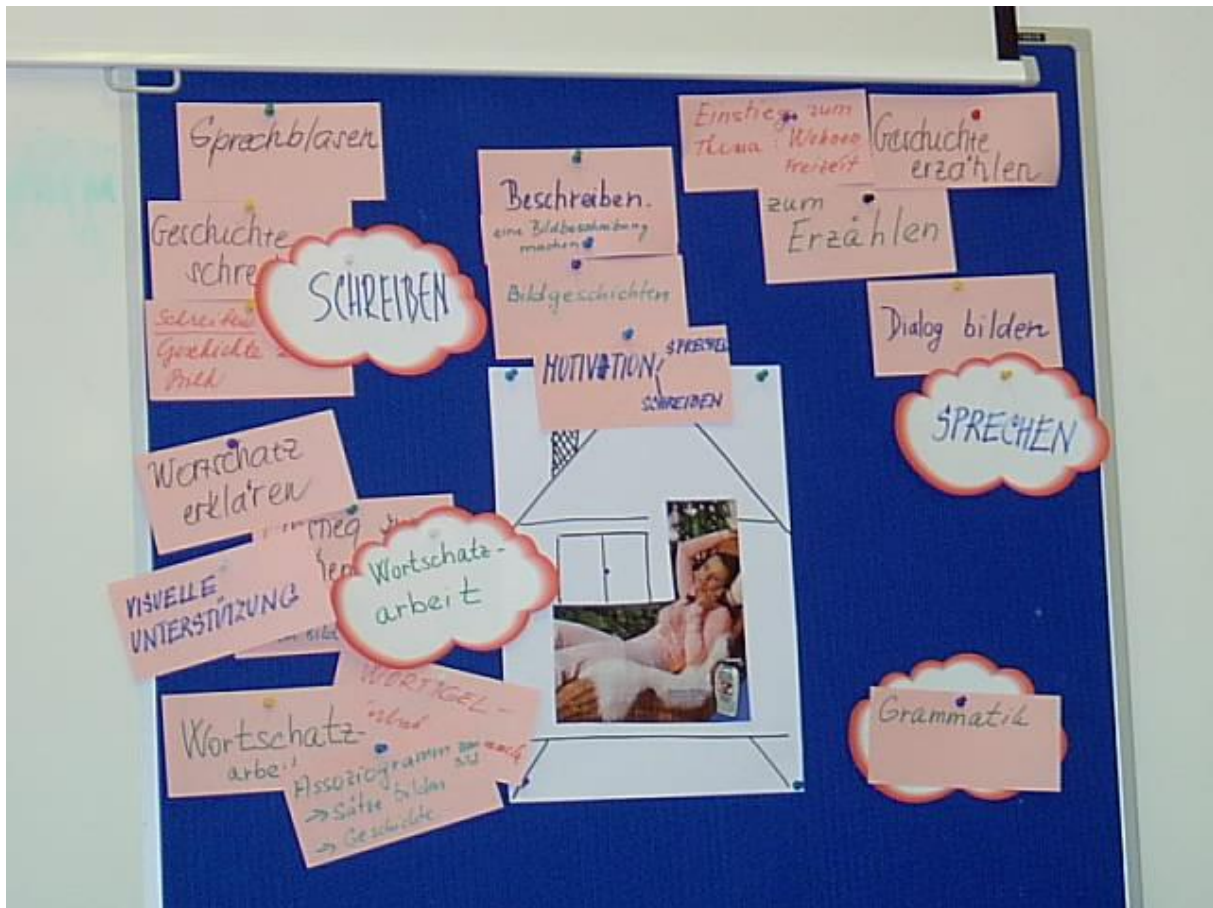 Sprechblasen
Geschichte
SCHREIBEN
Schreiben
Geschichte
Bild
Beschreiben.
eine Bildbeschreibung
machen
Bildgeschichten
MOTIVATION
SPRECHEN
SCHREIBEN
Einstieg zum
Thema: Wohnen
Freizeit
Geschichte
erzählen
zum
Erzählen
Dialog bilden
SPRECHEN
Wortschatz
erklären
VISUELLE
UNTERSTÜTZUNG
Wortschatz-
arbeit
WORTIGEL-
Wortschatz-
Assoziogramm
→ Sätze bilden
→ Geschichte
Grammatik